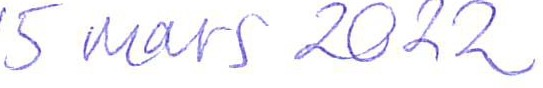 15 mars 2022